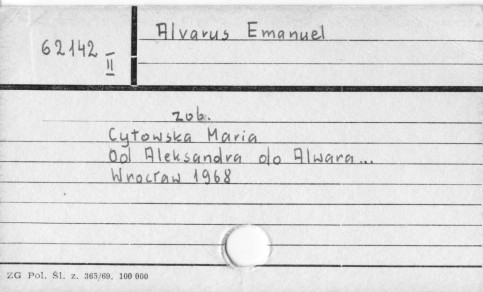 Alvarus Emanuel
62142
II
zob.
Cytowska Maria
Od Aleksandra do Alwara...
Wrocław 1968
ZG Pol. Śl. z. 365/69. 100 000